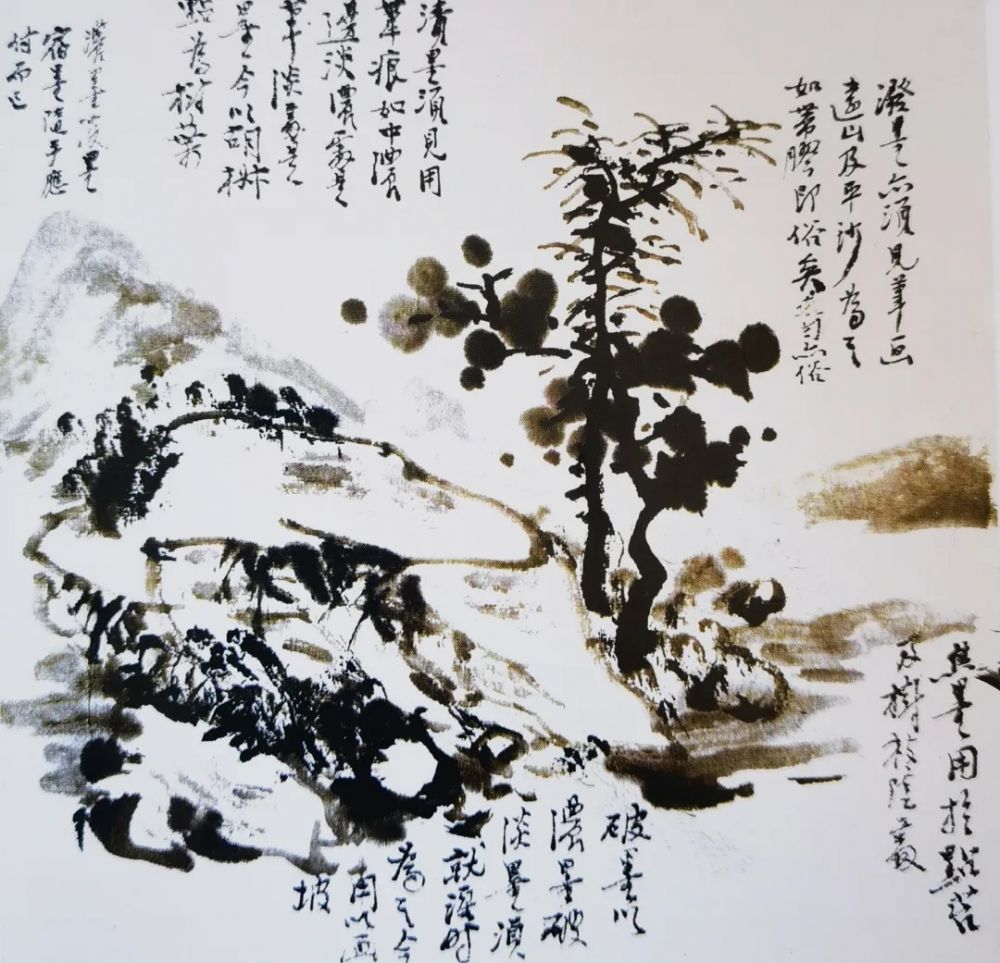 潑墨亦須見筆画
遠山及平沙為之
如著膠即俗矣
漬墨須見用
筆痕如中濃
邊淡濃處是
筆淡處是
墨今以胡椒
點為樹葉
濃墨淡墨
宿墨隨手應
付而已
焦墨用於點苔
及樹於陰處
破墨以
濃墨破
淡墨須
就濕時
為之今
用以画
坡